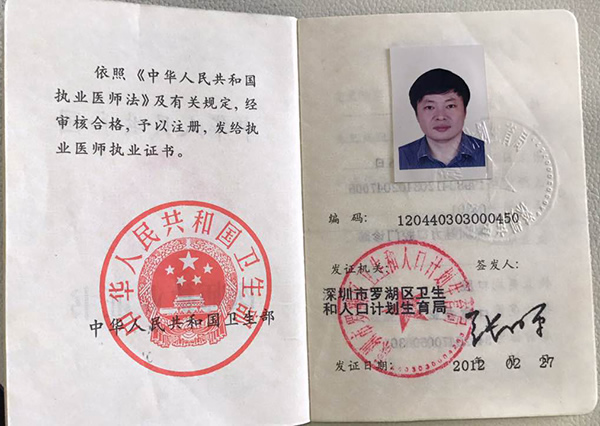 依照《中华人民共和国
执业医师法》及有关规定,经
审核合格,予以注册,发给执
业医师执业证书。
中华人民共和国卫生部
中华人民共和国卫生部
编码:
120440303000450
发证机关:
签发人:
深圳市罗湖区卫生
和人口计划生育局
发证日期:
2012 年 02 月 27